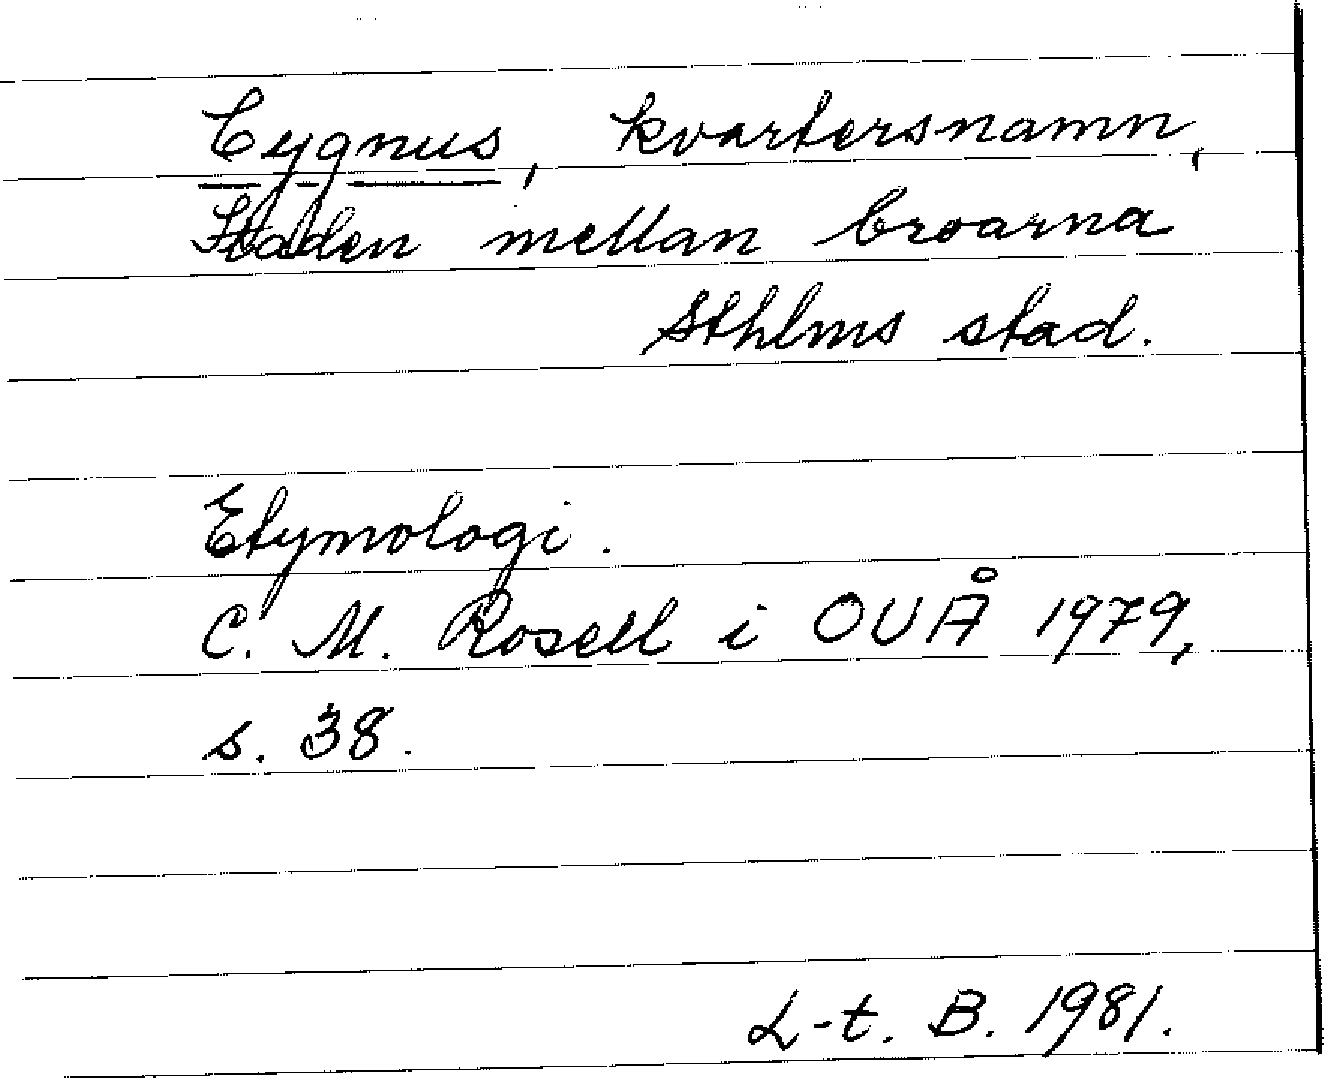 Cygnus, kvartersnamn,
Staden mellan broarna
Sthlms stad.
Etymologi.
C. M. Rosell i OUÅ 1979,
s. 38.
L-t. B. 1981.